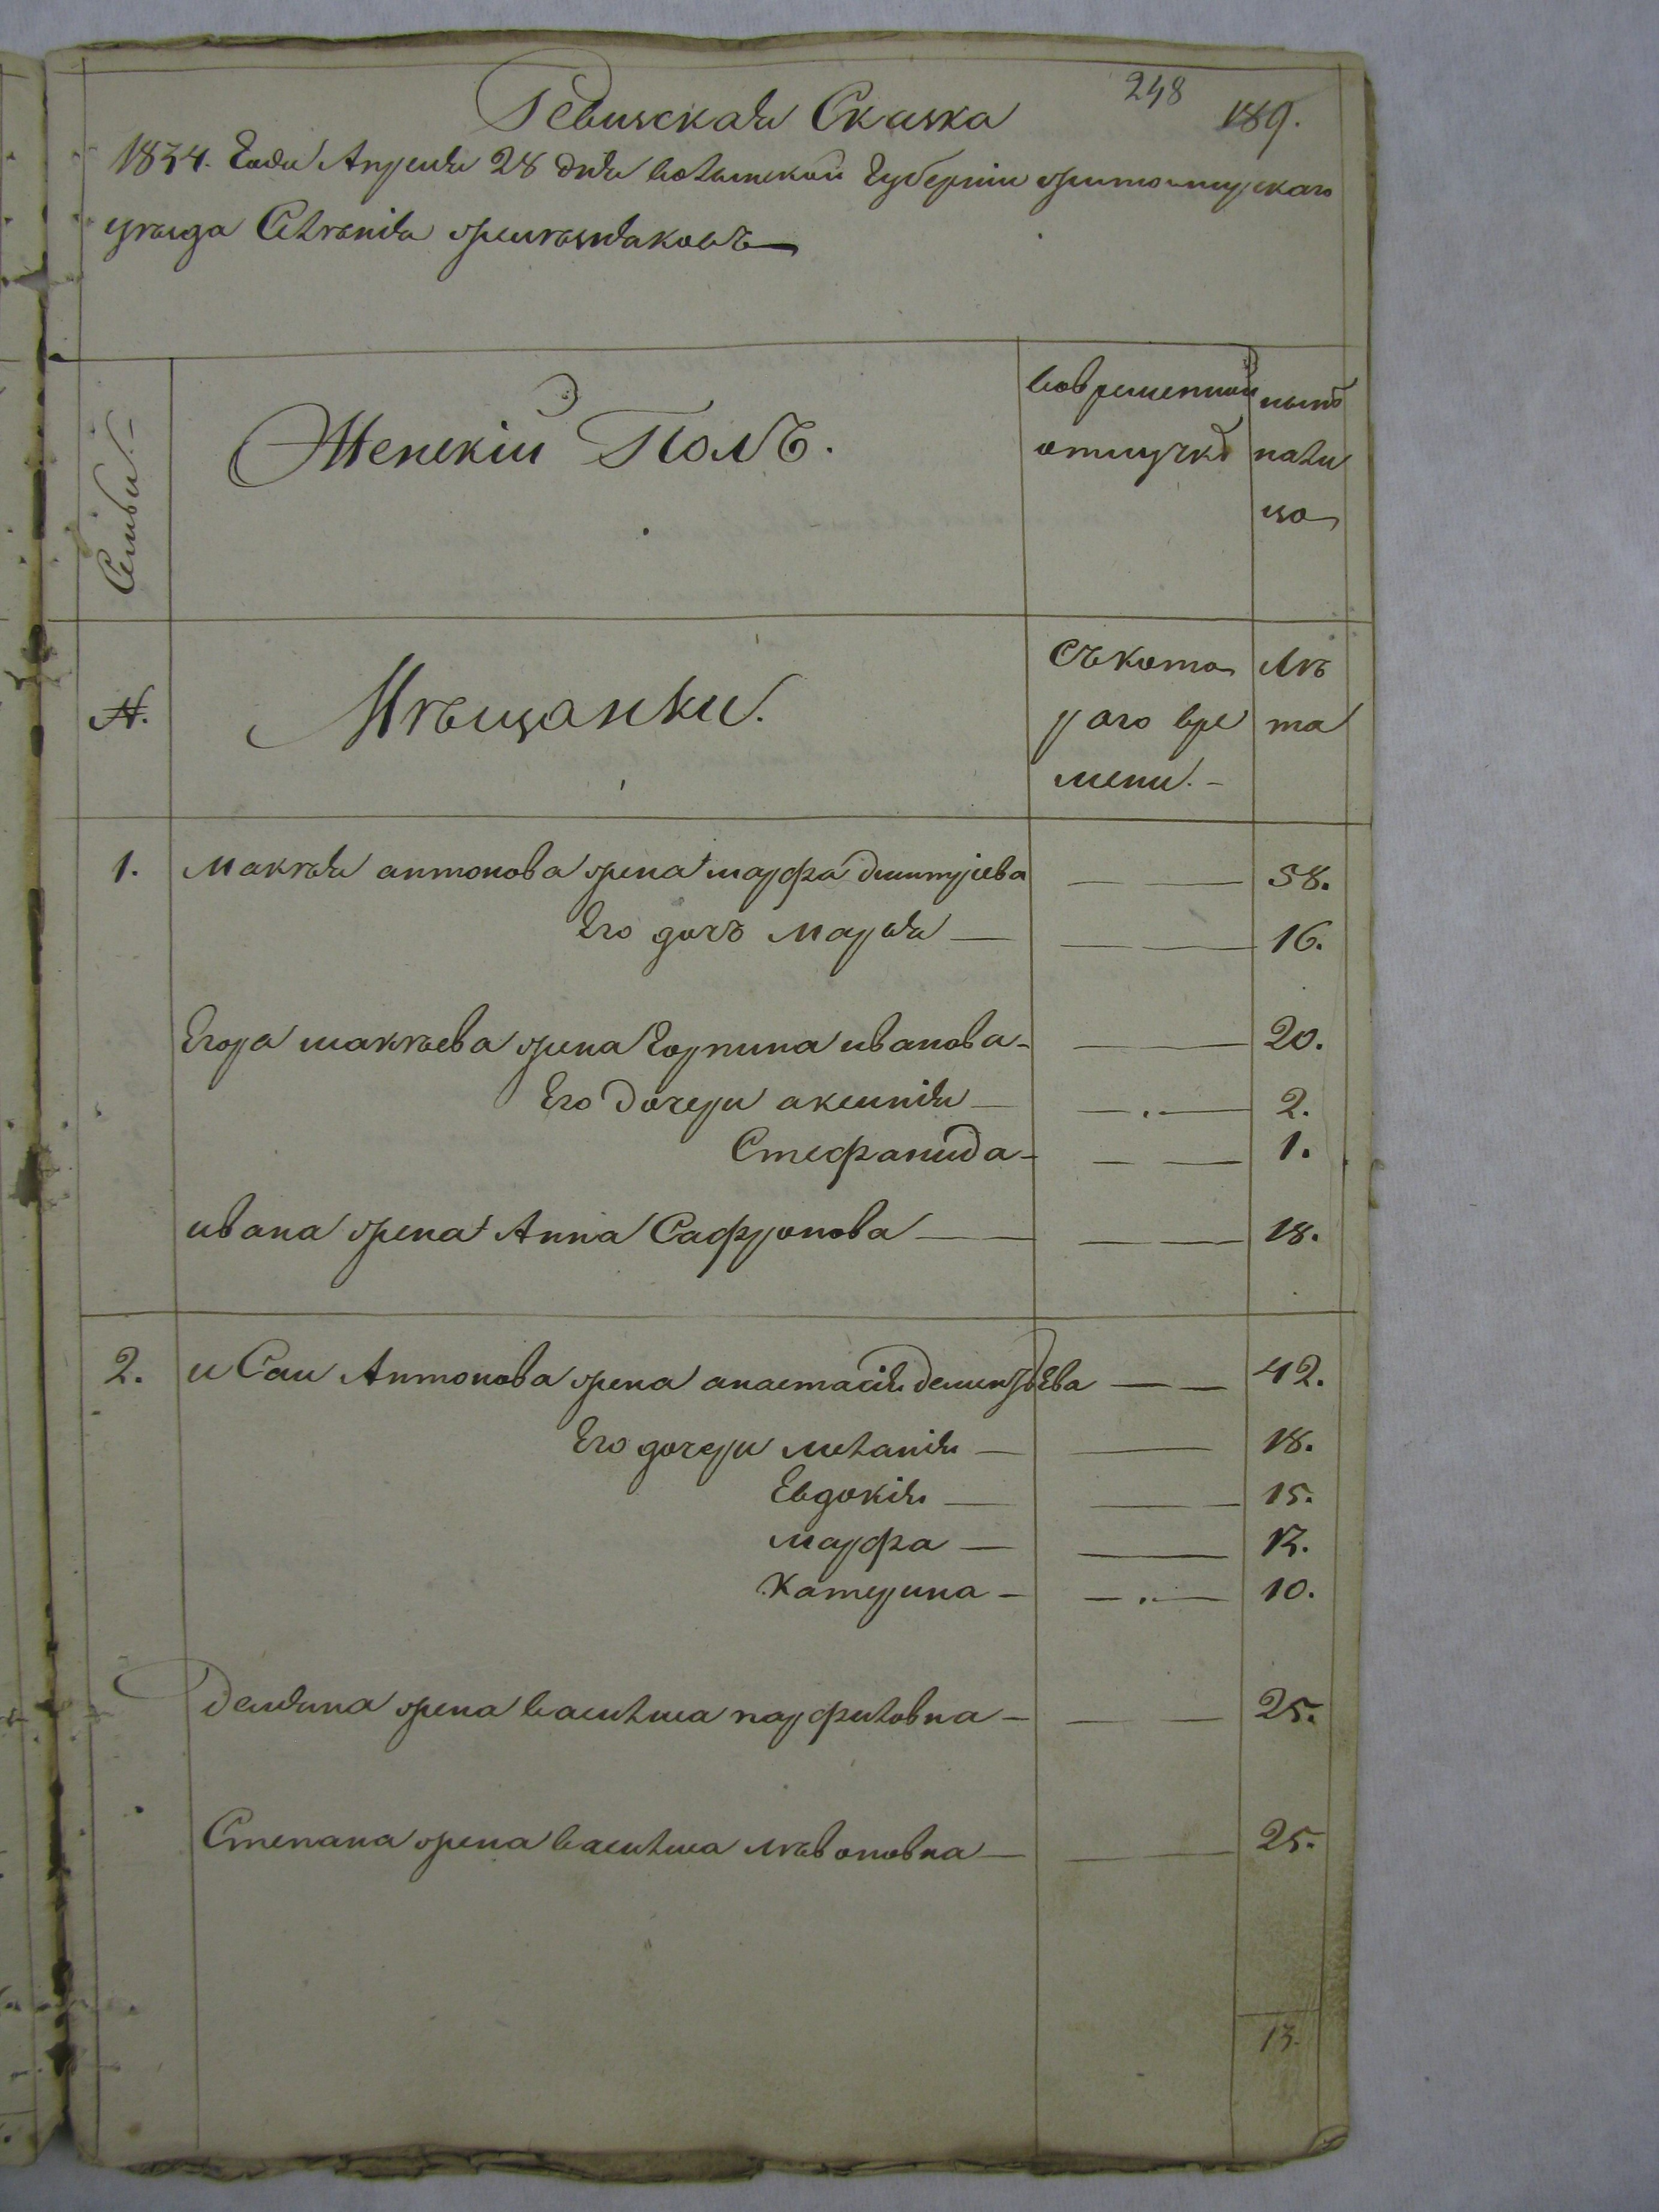 248
189.
Ревизская Сказка
1834. Года Апреля 28 дня волынской Губернии житомирскаго
уезда Селѣнія железняковъ
Семьи
Женскій Полъ.
вовременной отлучкѣ
нынѣ налицо
№.
Мѣщанки.
Съкотораго времени.
Лѣта
1. Макѣя антонова жена марфа дмитріева — — 58.
Его дочъ Марья — — — 16.
Егора макѣева жена Горпина иванова — — 20.
Его дочери аксинія — — — 2.
Стефанида — — — 1.
ивана жена Анна Сафронова — — — 18.
2. иСаи Антонова жена анастасія дементьЕва — — 42.
Его дочери меланія — — 18.
Евдокія — — 15.
марфа — — 13.
Катерина — — — 10.
демяна жена василиса парфиловна — — — 25.
Степана жена василиса лѣвоновна — — 25.
13.